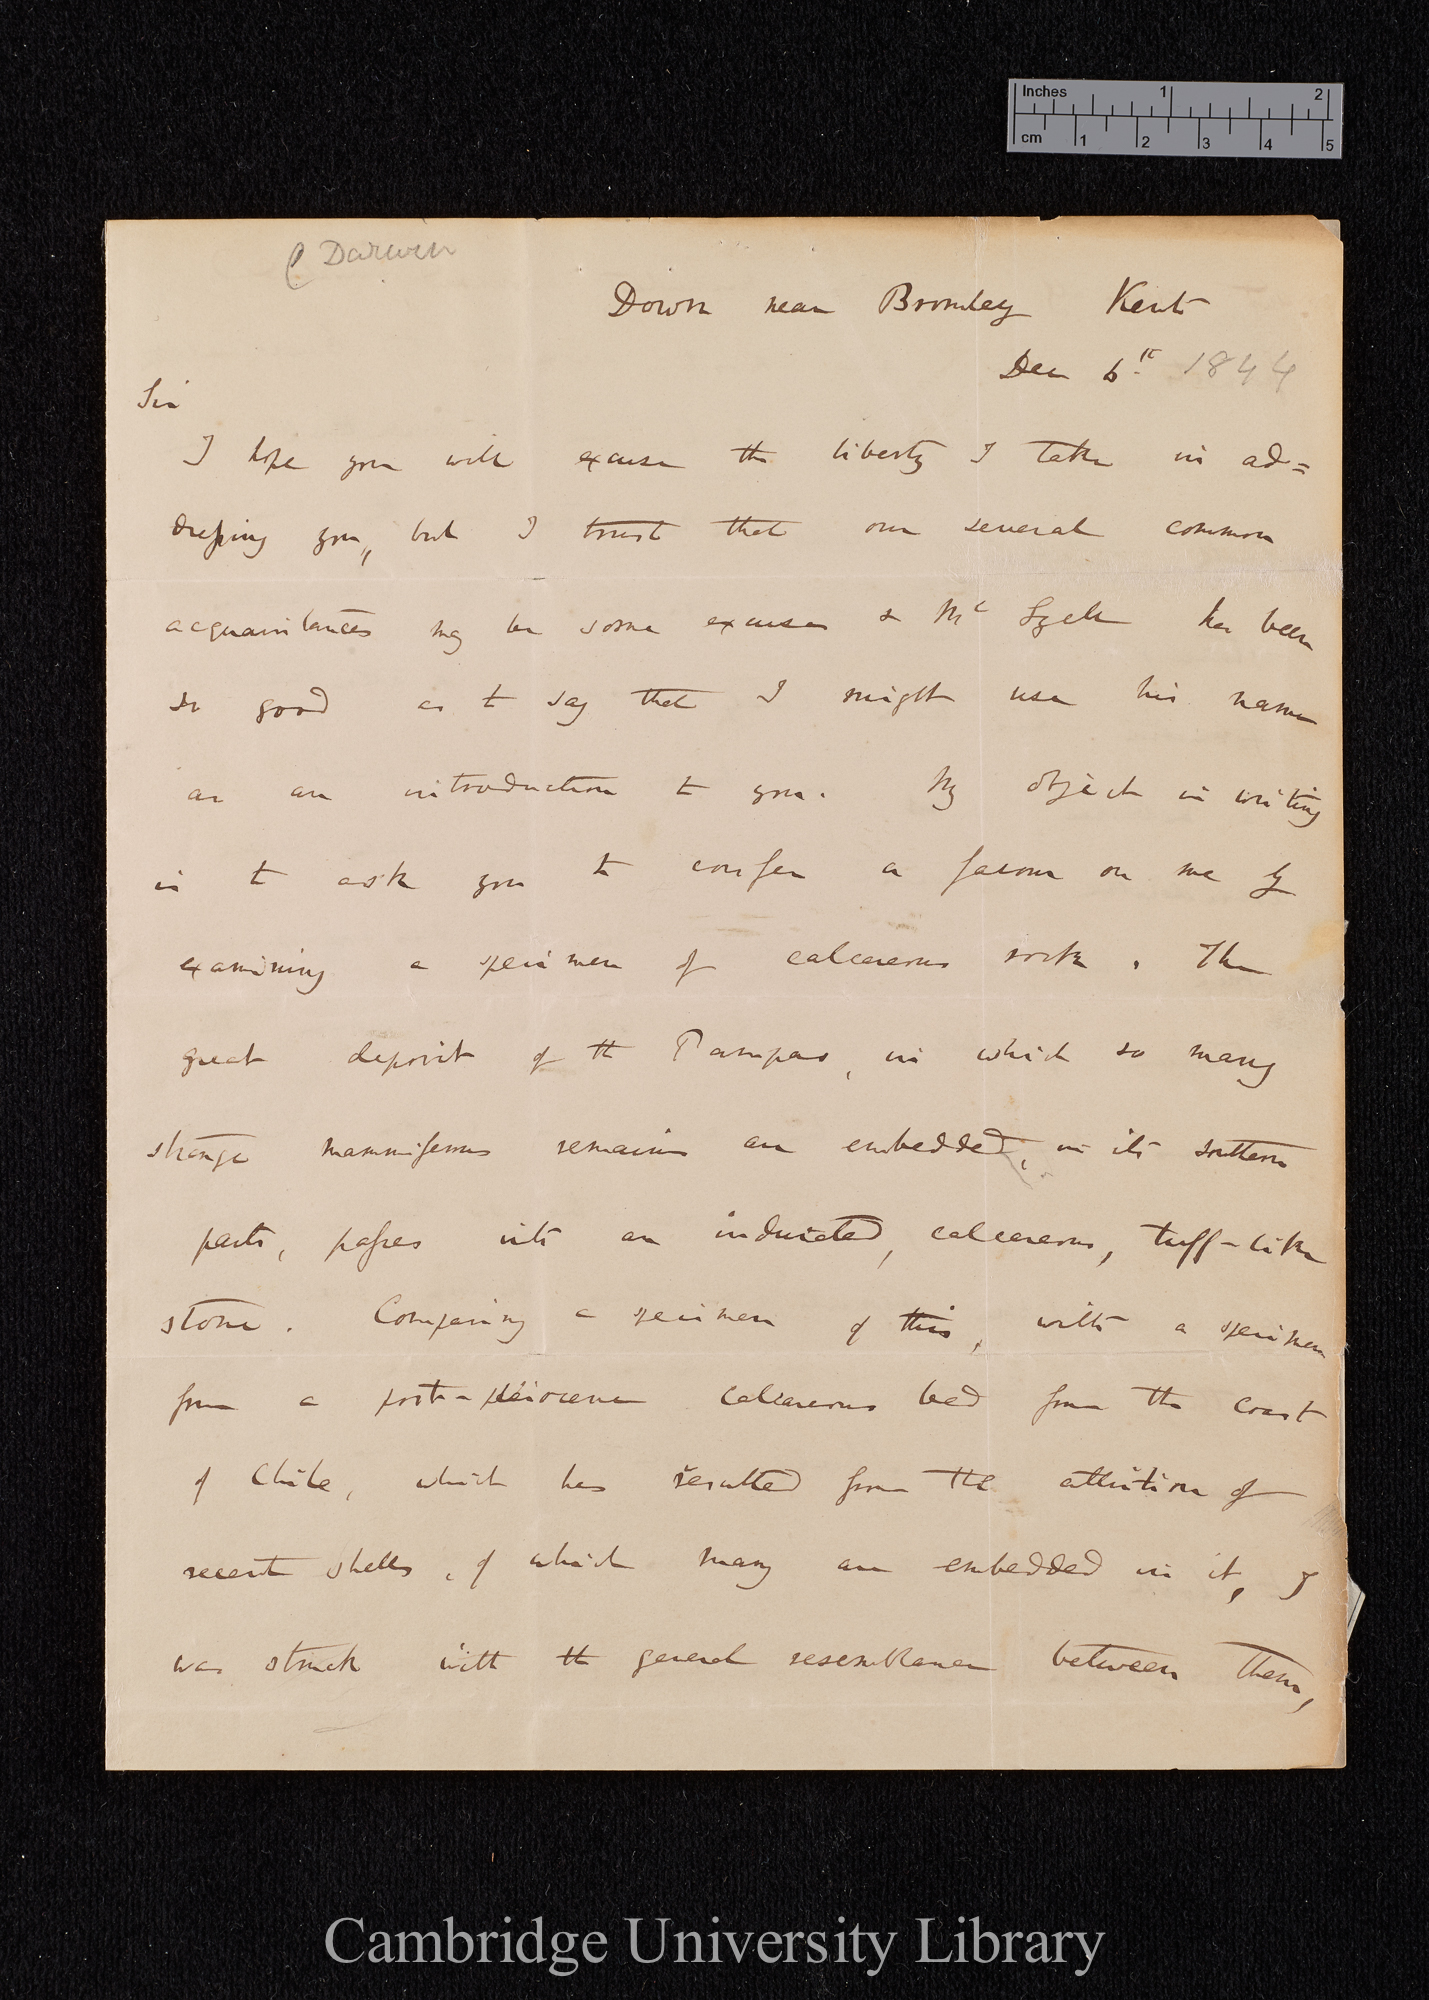 Inches 1 2
cm 1 2 3 4 5
C Darwin
Down near Bromley Kent
Dec 6th. 1844
Sir
I hope you will excuse the liberty I take in ad=
dressing you, but I trust that our several common
acquaintances may be some excuse & Mr Lyell has been
so good as to say that I might use his name
as an introduction to you. My object in writing
is to ask you to confer a favour on me by
examining a specimen of calcareous rock. The
great deposit of the Pampas, in which so many
strange mammiferous remains are embedded, in its southern
parts, passes into an indurated, calcareous, tuff-like
stone. Comparing a specimen of this, with a specimen
from a post-pleiocene calcareous bed from the coast
of Chile, which has resulted from the attrition of
recent shells, of which many are embedded in it, I
was struck with the general resemblance between them,
Cambridge University Library